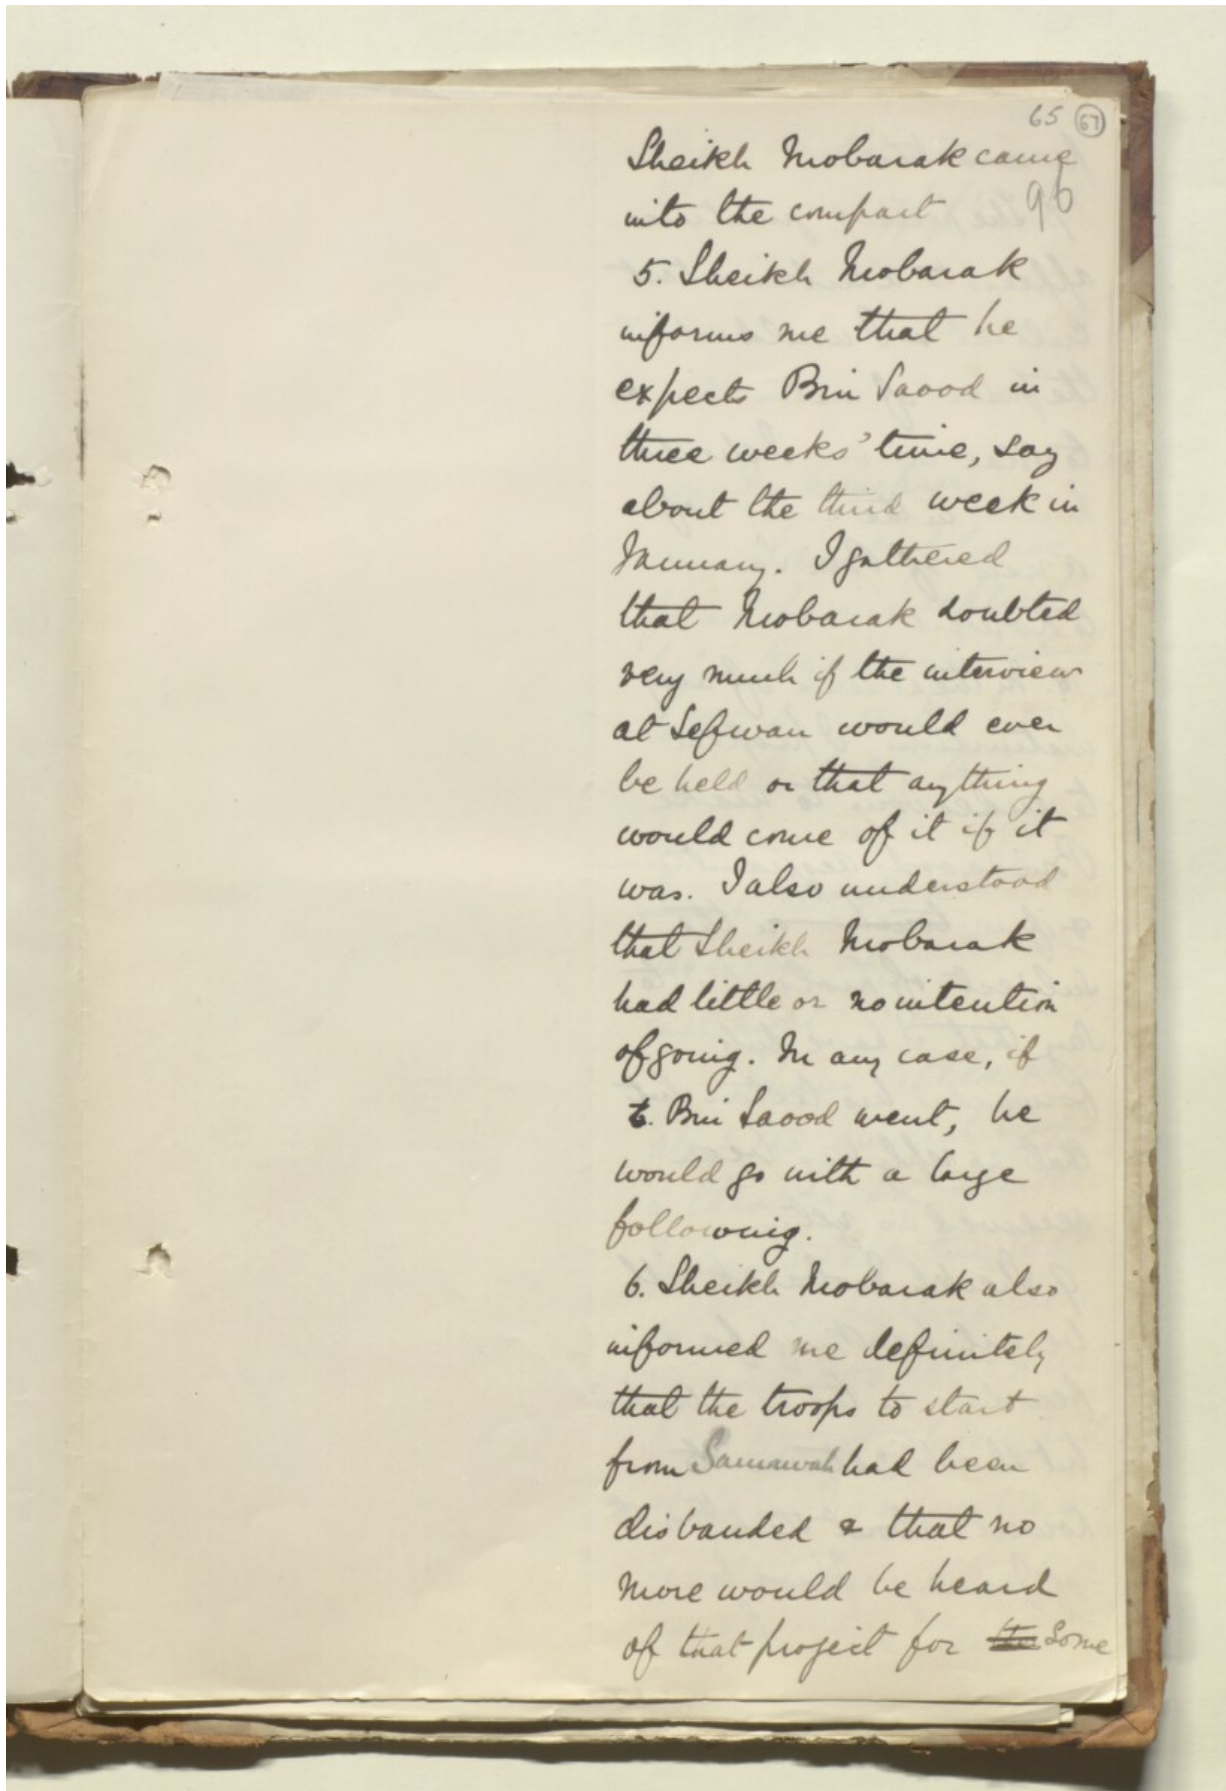 65 67
Sheikh Mobarak came
into the compact 96
5. Sheikh Mobarak
informs me that he
expects Bin Saood in
three weeks' time, say
about the third week in
January. I gathered
that Mobarak doubted
very much if the interview
at Sefwan would ever
be held or that anything
would come of it if it
was. I also understood
that Sheikh Mobarak
had little or no intention
of going. In any case, if
Bin Saood went, he
would go with a large
following.
6. Sheikh Mobarak also
informed me definitely
that the troops to start
from Samawah had been
disbanded & that no
more would be heard
of that project for some